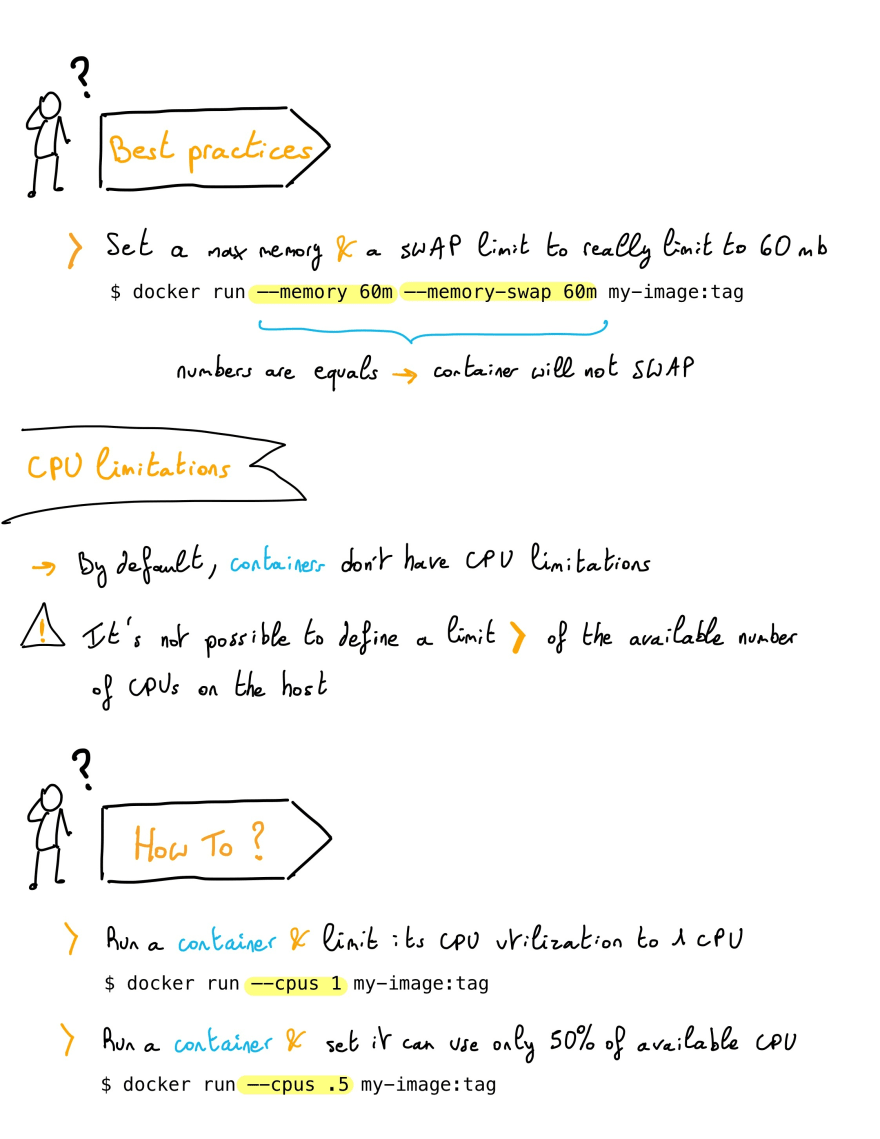 ?
Best practices
> Set a max memory & a SWAP limit to really limit to 60 mb
$ docker run --memory 60m --memory-swap 60m my-image:tag
numbers are equals → container will not SWAP
CPU limitations
→ By default, containers don't have CPU limitations
! It's not possible to define a limit > of the available number
of CPUs on the host
?
How To ?
> Run a container & limit its CPU utilization to 1 CPU
$ docker run --cpus 1 my-image:tag
> Run a container & set it can use only 50% of available CPU
$ docker run --cpus .5 my-image:tag